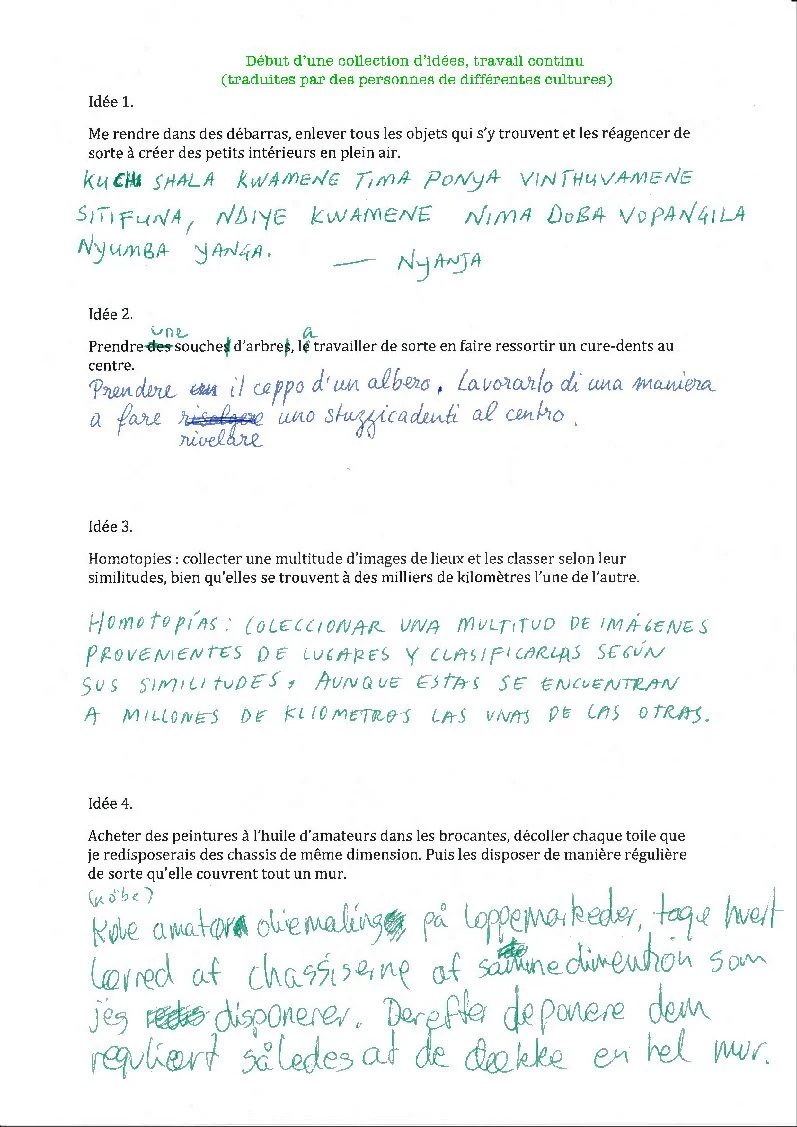 Début d'une collection d'idées, travail continu
(traduites par des personnes de différentes cultures)
Idée 1.
Me rendre dans des débarras, enlever tous les objets qui s'y trouvent et les réagencer de
sorte à créer des petits intérieurs en plein air.
KUCHI SHALA KWAMENE TIMA PONYA VINTHUVAMENE
SITIFUNA, NDIYE KWAMENE NIMA DOBA VOPANGILA
NYUMBA YANGA. — NYANJA
Idée 2.
une a
Prendre des souches d'arbres, le travailler de sorte en faire ressortir un cure-dents au
centre.
Prendere il ceppo d'un albero, lavorarlo di una maniera
a fare uno stuzzicadenti al centro.
rivelare
Idée 3.
Homotopies : collecter une multitude d'images de lieux et les classer selon leur
similitudes, bien qu'elles se trouvent à des milliers de kilomètres l'une de l'autre.
HOMOTOPÍAS: COLECCIONAR UNA MULTITUD DE IMÁGENES
PROVENIENTES DE LUGARES Y CLASIFICARLAS SEGÚN
SUS SIMILITUDES, AUNQUE ESTAS SE ENCUENTRAN
A MILLONES DE KLIOMETROS LAS UNAS DE LAS OTRAS.
Idée 4.
Acheter des peintures à l'huile d'amateurs dans les brocantes, décoller chaque toile que
je redisposerais des chassis de même dimension. Puis les disposer de manière régulière
de sorte qu'elle couvrent tout un mur.
(købe)
Købe amatør oliemaling på loppemarkeder, tage hvert
lærred af chassiserne af samme dimention som
jeg disponerer. Derefter deponere dem
regulært således at de dække en hel mur.